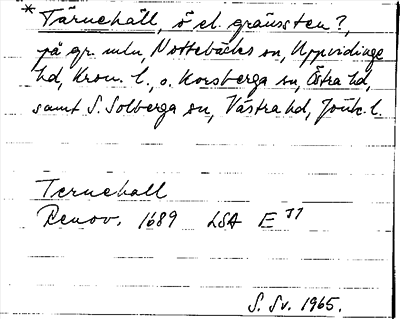 * Tärnehäll, ö el. gränssten?,
på gr. mln, Nottebäcks sn, Uppvidinge
hd, Kron. l., o. Korsberga sn, Östra hd,
samt S. Solberga sn, Västra hd, Jönk. l.
Ternehall
Renov. 1689 LSA E 77
S. Sv. 1965.